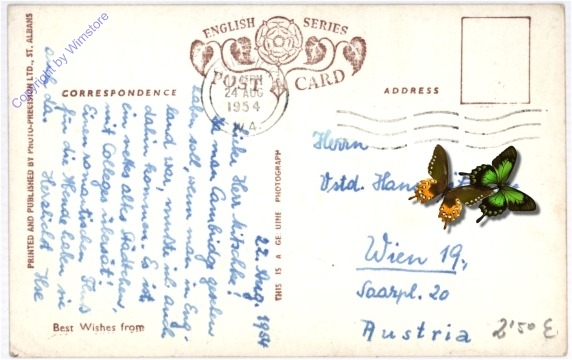 ENGLISH SERIES
POST CARD
24 AUG
1954
W.A.
CORRESPONDENCE
ADDRESS
22. Aug. 1954
Liebe Herr Nitschke!
Da man Cambridge gesehen
haben soll, wenn man in Eng-
land war, mußte ich auch
dahin kommen. Es ist
ein nettes altes Städtchen,
mit Colleges übersät!
Einen romantischen Fluß
für die Hunde haben sie
auch da. Herzlichst Ilse
Best Wishes from
PRINTED AND PUBLISHED BY PHOTO-PRECISION LTD., ST. ALBANS
THIS IS A GENUINE PHOTOGRAPH
Herrn
Vstd. Han
Wien 19.,
Saarpl. 20
Austria
2'50 E
Copyright by Wimstore